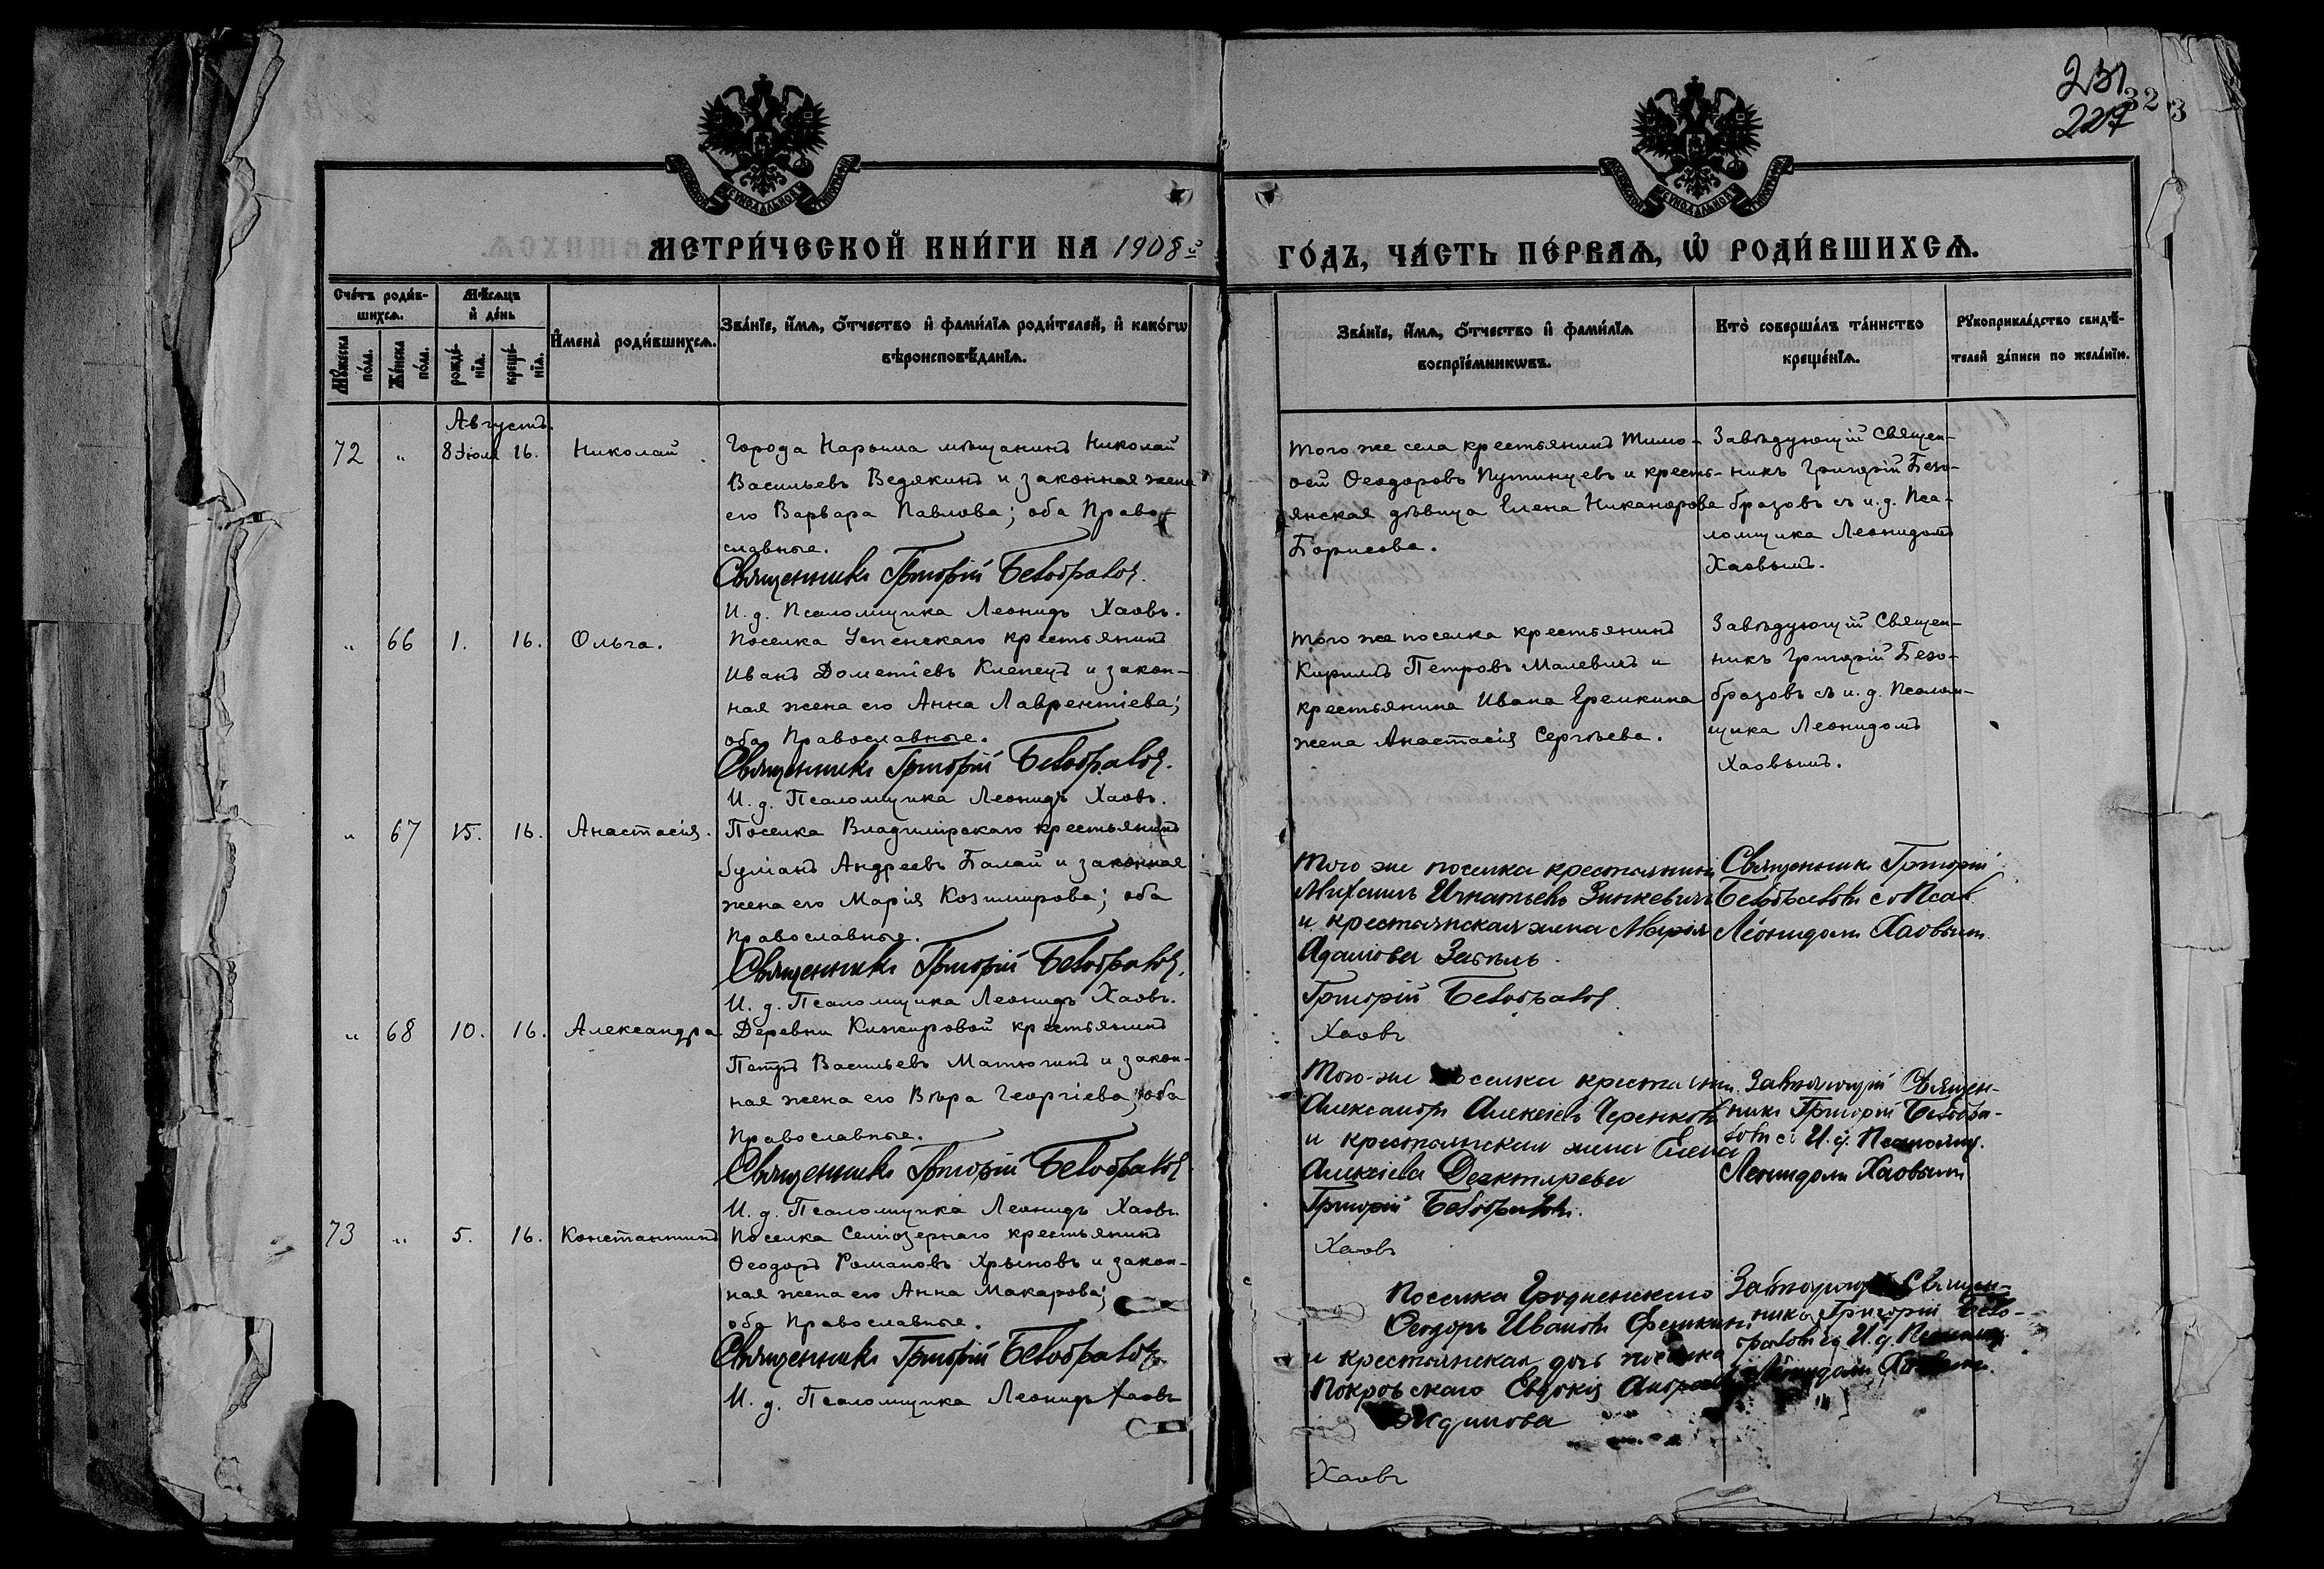 251
227
323
МЕТРИ́ЧЕСКОЙ КНИ́ГИ НА 1908й
ГО́ДЪ, ЧА́СТЬ ПЕ́РВАѦ, Ѡ РОДИ́ВШИХСѦ.
Сче́тъ роди́в-
шихсѧ.
Мѣ́сѧцъ
и́ де́нь
Мꙋ́жеска
по́ла.
Же́нска
по́ла.
рожде́-
нїѧ.
креще́-
нїѧ.
И҆мена̀ роди́вшихсѧ.
Зва́нїе, и҆́мѧ, ѻ҆́тчество и҆ фами́лїѧ роди́телей, и҆ како́гѡ
вѣроисповѣ́данїѧ.
Зва́нїе, и҆́мѧ, ѻ҆́тчество и҆ фами́лїѧ
воспрїе́мникѡвъ.
Кто̀ соверша́лъ та́инство
креще́нїѧ.
Рꙋкоприкла́дство свидѣ́-
телей за́писи по жела́нїю.
Августъ.
72 " 8 Іюля 16. Николай.
Города Нарыма мѣщанинъ Николай
Васильевъ Ведякинъ и законная жена
его Варвара Павлова; оба Право-
славные.
Священникъ Григорій Безобразов.
И. д. Псаломщика Леонидъ Хаовъ.
Того же села крестьянинъ Тимо-
ѳей Ѳеодоровъ Путинцевъ и кресть-
янская дѣвица Елена Никанорова
Борисова.
Завѣдующій Священ-
никъ Григорій Безо-
бразовъ съ и. д. Пса-
ломщика Леонидомъ
Хаовымъ.
" 66 1. 16. Ольга.
Поселка Успенскаго крестьянинъ
Иванъ Дометіевъ Клепецъ и закон-
ная жена его Анна Лаврентіева;
оба Православные.
Священникъ Григорій Безобразов.
И. д. Псаломщика Леонидъ Хаовъ.
Того же поселка крестьянинъ
Кириллъ Петровъ Малевичъ и
крестьянина Ивана Еремкина
жена Анастасія Сергѣева.
Завѣдующій Священ-
никъ Григорій Безо-
бразовъ съ и. д. Псалом-
щика Леонидомъ
Хаовымъ.
" 67 15. 16. Анастасія.
Поселка Владимірскаго крестьянинъ
Андреевъ Балай и законная
жена его Марія Козимирова; оба
Православные.
Священникъ Григорій Безобразов.
И. д. Псаломщика Леонидъ Хаовъ.
Того же поселка крестьянинъ
Михаилъ Игнатьевъ Зинкевичъ
и крестьянская жена Марія
Адамова
Григорій Безобразов
Хаовъ
Священникъ Григорій
Безобразовъ с Псал.
Леонидомъ Хаовымъ.
" 68 10. 16. Александра
Деревни Кижировой крестьянинъ
Петръ Васильевъ Матюгинъ и закон-
ная жена его Вѣра Георгіева; оба
Православные.
Священникъ Григорій Безобразов
И. д. Псаломщика Леонидъ Хаовъ.
Того-же поселка крестьянин
Александръ Алексѣевъ Черенковъ
и крестьянская жена Елена
Алексѣева Дехтярева
Григорій Безобразовъ.
Хаовъ
Завѣдующій Священ-
никъ Григорій Безобра-
зовъ съ И. д. Псаломщ.
Леонидомъ Хаовымъ
73 " 5. 16. Константинъ
Поселка Семіозернаго крестьянинъ
Ѳеодоръ Романовъ Хрыновъ и закон-
ная жена его Анна Макарова;
оба Православные.
Священникъ Григорій Безобразов.
И. д. Псаломщика Леонидъ Хаовъ
Поселка Гродненскаго
Ѳеодоръ Ивановъ Фемкин
и крестьянская дочь поселка
Покровскаго Евдокія
Хаовъ
Завѣдующій Священ-
никъ Григорій Безо-
бразовъ съ И. д. Псаломщ.
Леонидомъ Хаовымъ